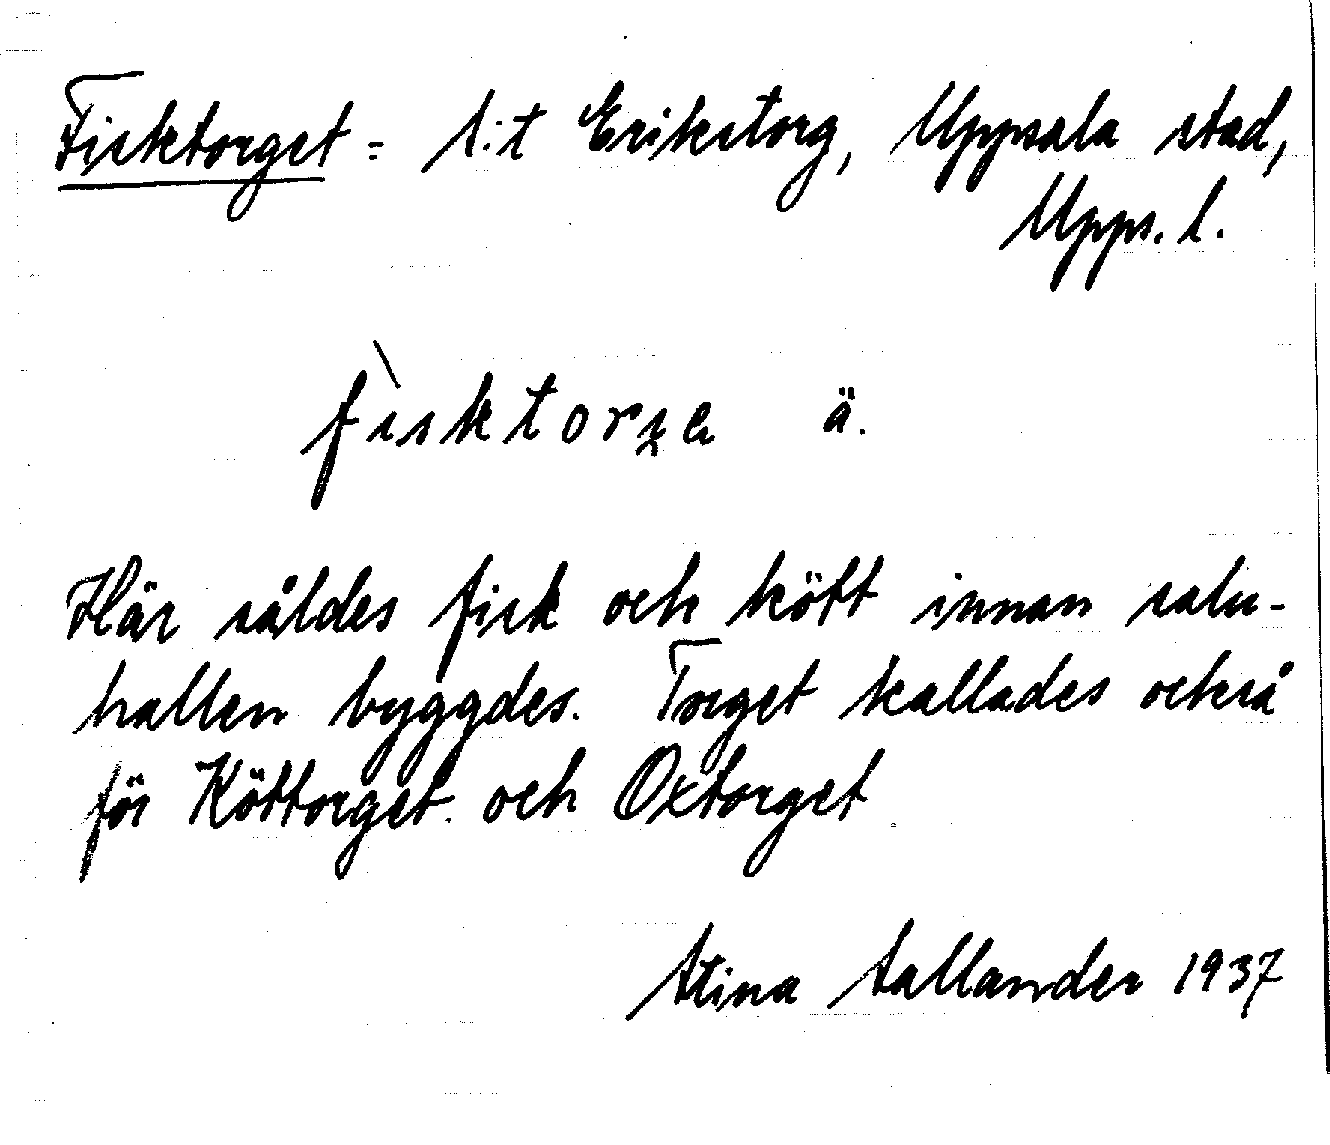 Fisktorget = S:t Erikstorg, Uppsala stad,
Upps. l.
fìsktorʒe ä.
Här såldes fisk och kött innan salu-
hallen byggdes. Torget kallades också
för Köttorget och Oxtorget
Stina Sallander 1937